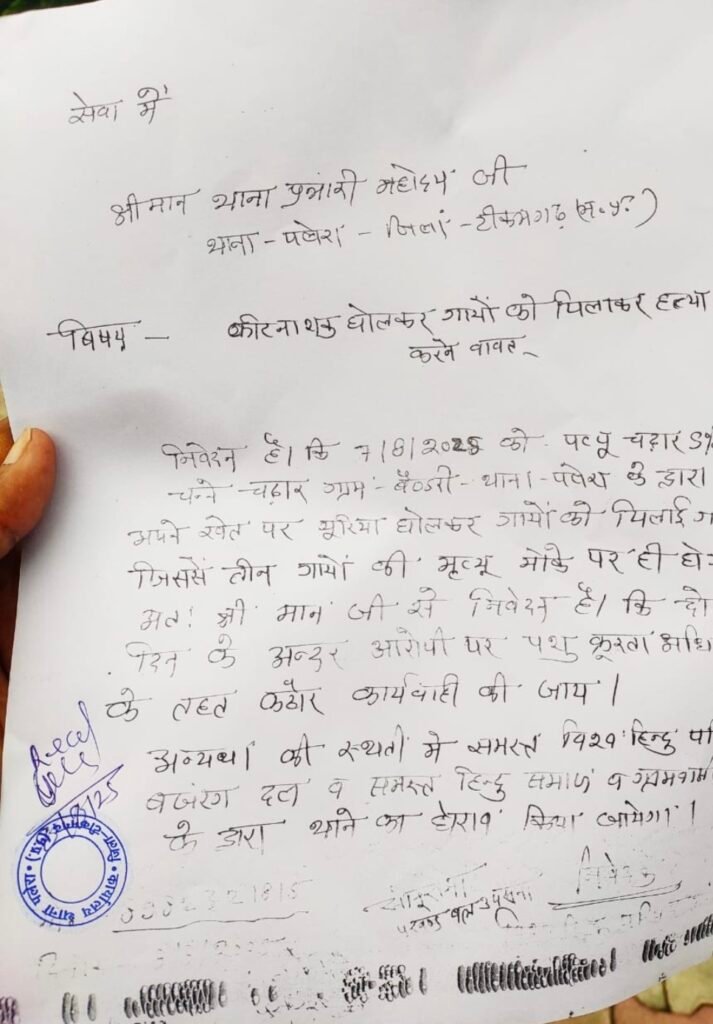 सेवा में
श्रीमान थाना प्रभारी महोदय जी
थाना - पलेरा - जिला - टीकमगढ़ (म.प्र.)
विषय - कीटनाशक घोलकर गायों को पिलाकर हत्या
करने वावत्
निवेदन है। कि 7/8/2025 को पप्पू चढ़ार S/o
चन्ने - चढ़ार ग्राम - थाना - पलेरा के द्वारा
अपने खेत पर यूरिया घोलकर गायों को पिलाई ग
जिससें तीन गायों की मृत्यू मोके पर ही हो
अत: श्री मान जी से निवेदन है। कि दो
दिन के अन्दर आरोपी पर पशु क्रूरता अधि
के तहत कठोर कार्यवाही की जाय।
अन्यथा की स्थती में समस्त विश्व हिन्दु प
बजरंग दल व समस्त हिन्दु समाज व ग्रामवासी
के द्वारा थाने का घेराव किया जायेगा।
निवेदक